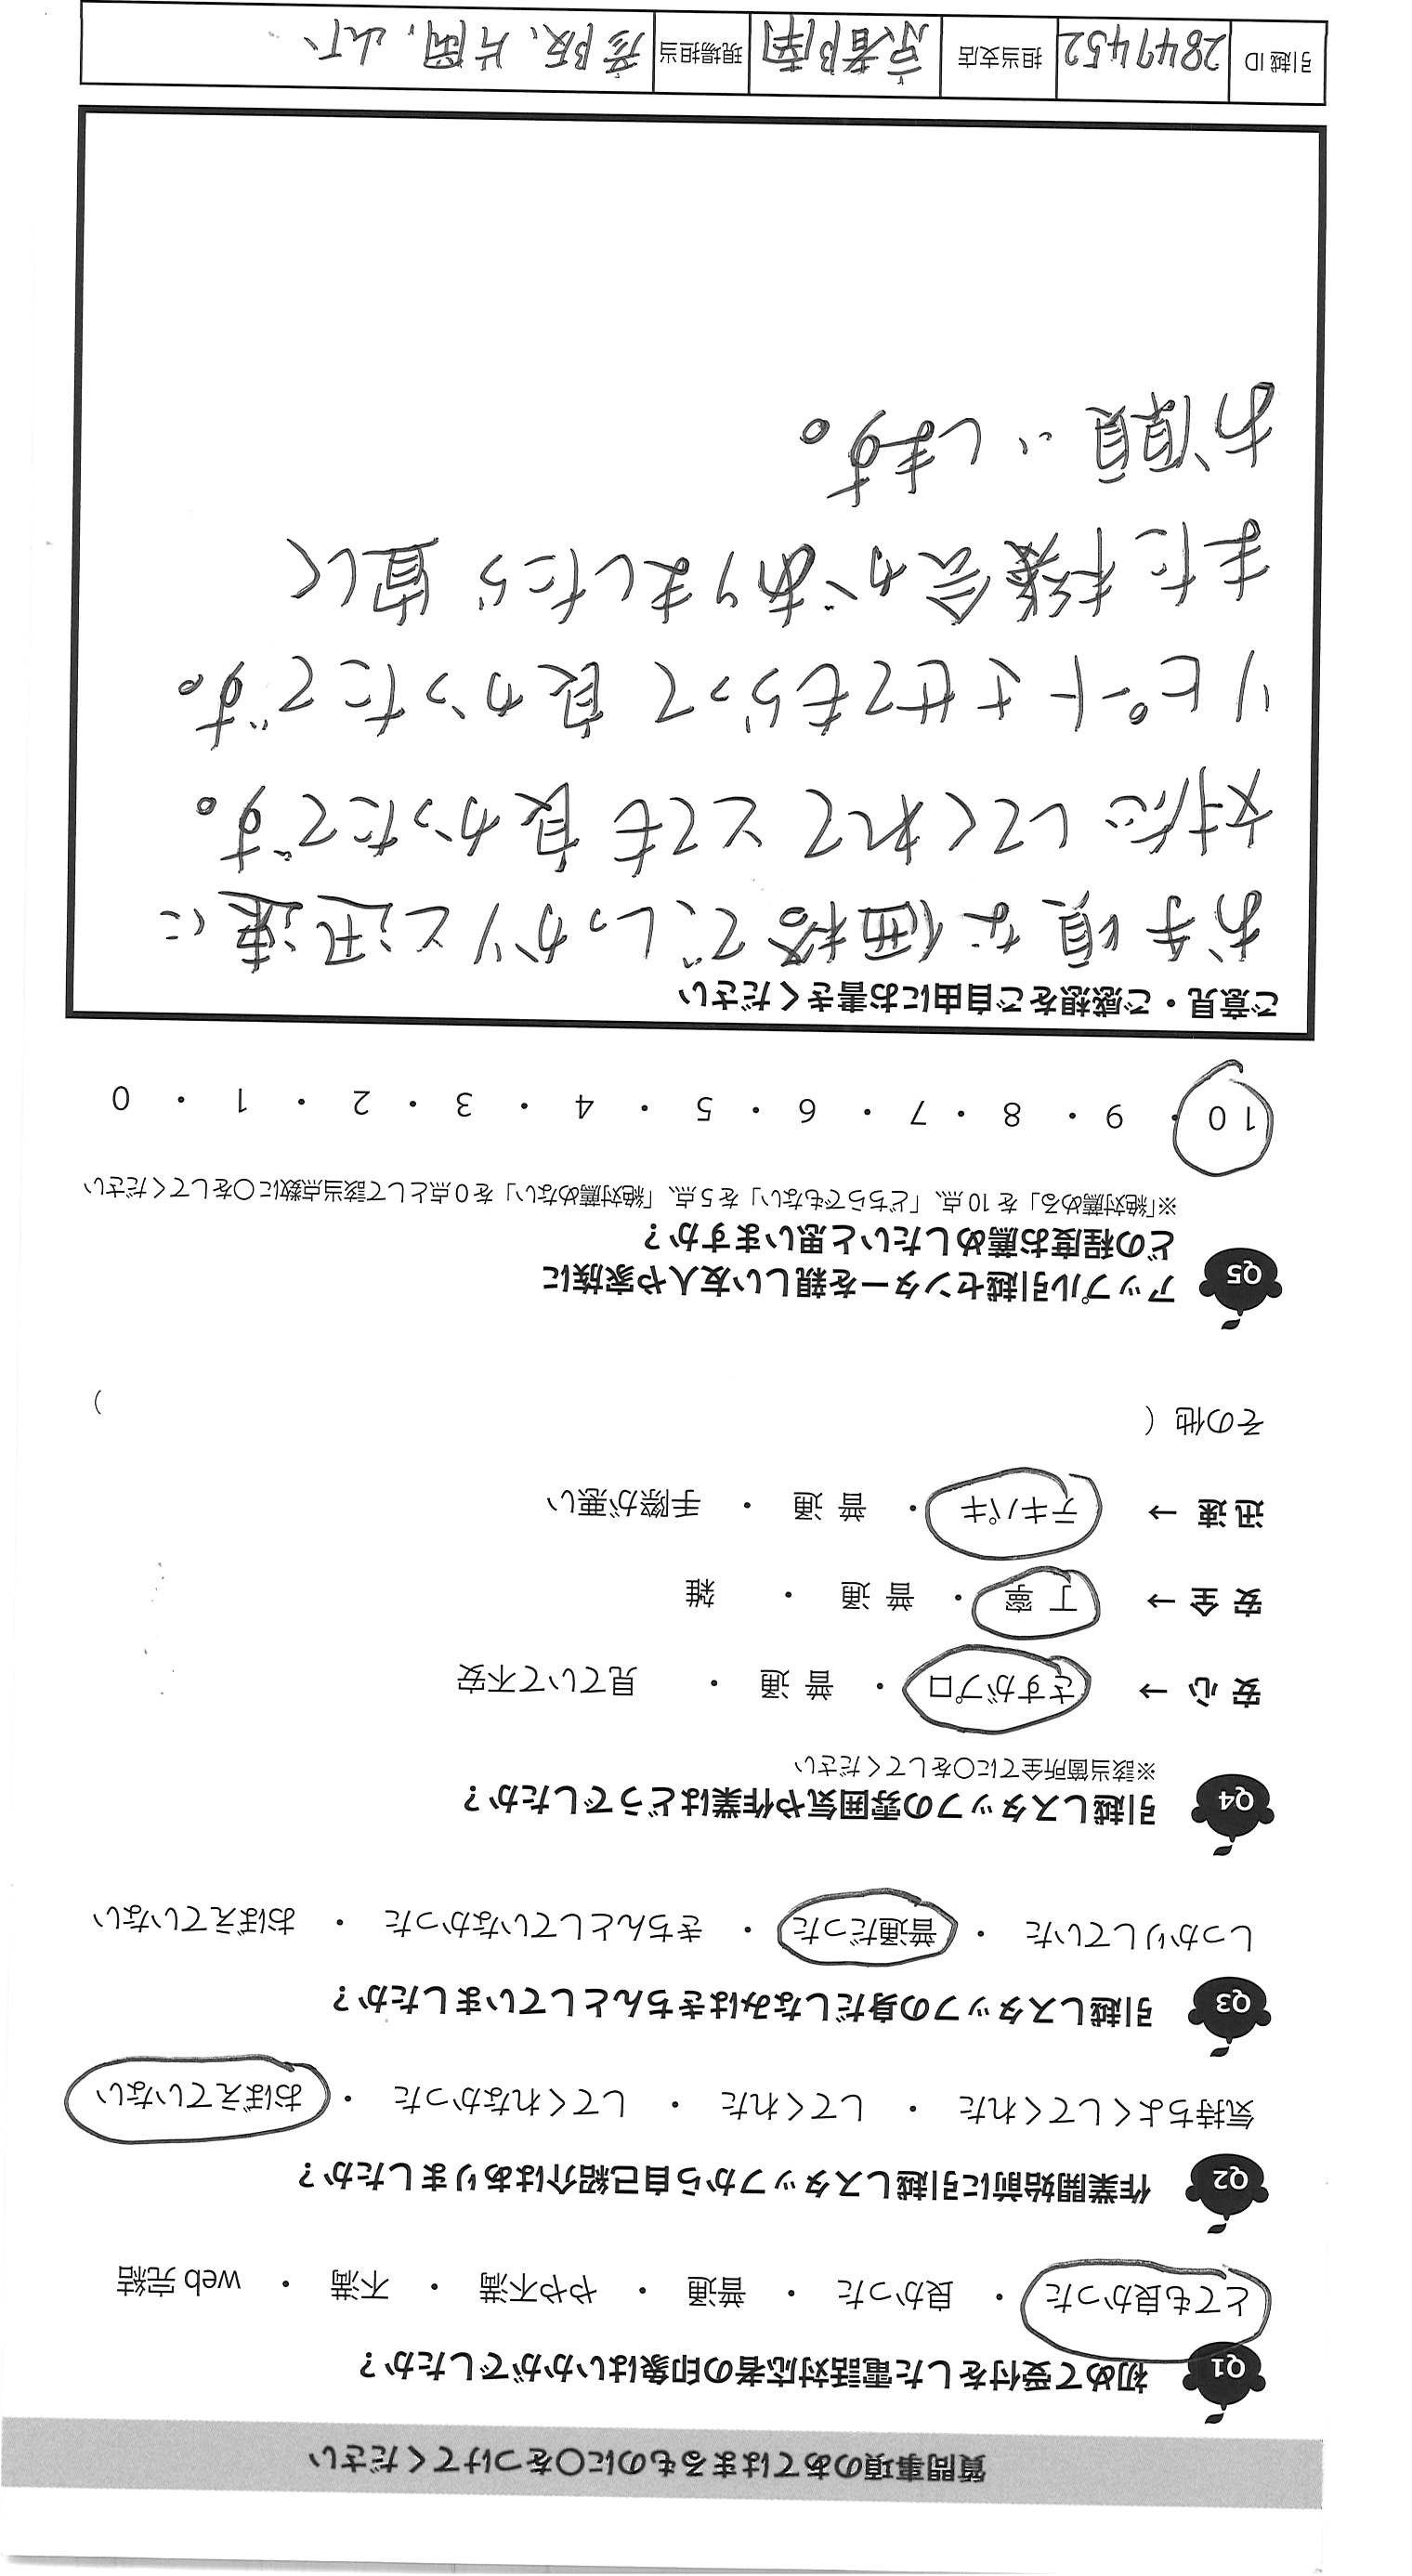 質問事項のあてはまるものに〇をつけてください
Q1 初めて受付をした電話対応者の印象はいかがでしたか？
とても良かった ・ 良かった ・ 普通 ・ やや不満 ・ 不満 ・ web 完結
Q2 作業開始前に引越しスタッフから自己紹介はありましたか？
気持ちよくしてくれた ・ してくれた ・ してくれなかった ・ おぼえていない
Q3 引越しスタッフの身だしなみはきちんとしていましたか？
しっかりしていた ・ 普通だった ・ きちんとしていなかった ・ おぼえていない
Q4 引越しスタッフの雰囲気や作業はどうでしたか？
※該当箇所全てに〇をしてください
安心 → さすがプロ ・ 普通 ・ 見ていて不安
安全 → 丁寧 ・ 普通 ・ 雑
迅速 → テキパキ ・ 普通 ・ 手際が悪い
その他（ ）
Q5 アップル引越センターを親しい友人や家族に
どの程度お薦めしたいと思いますか？
※「絶対薦める」を 10 点、「どちらでもない」を 5 点、「絶対薦めない」を 0 点として該当点数に〇をしてください
10 ・ 9 ・ 8 ・ 7 ・ 6 ・ 5 ・ 4 ・ 3 ・ 2 ・ 1 ・ 0
ご意見・ご感想をご自由にお書きください
お手頃な価格でしっかりと迅速に
対応してくれてとても良かったです。
リピートさせてもらって良かったです。
また機会がありましたら宜しく
お願いします。
引越 ID 2847452 担当支店 京都南 現場担当 彦阪、片岡、山下